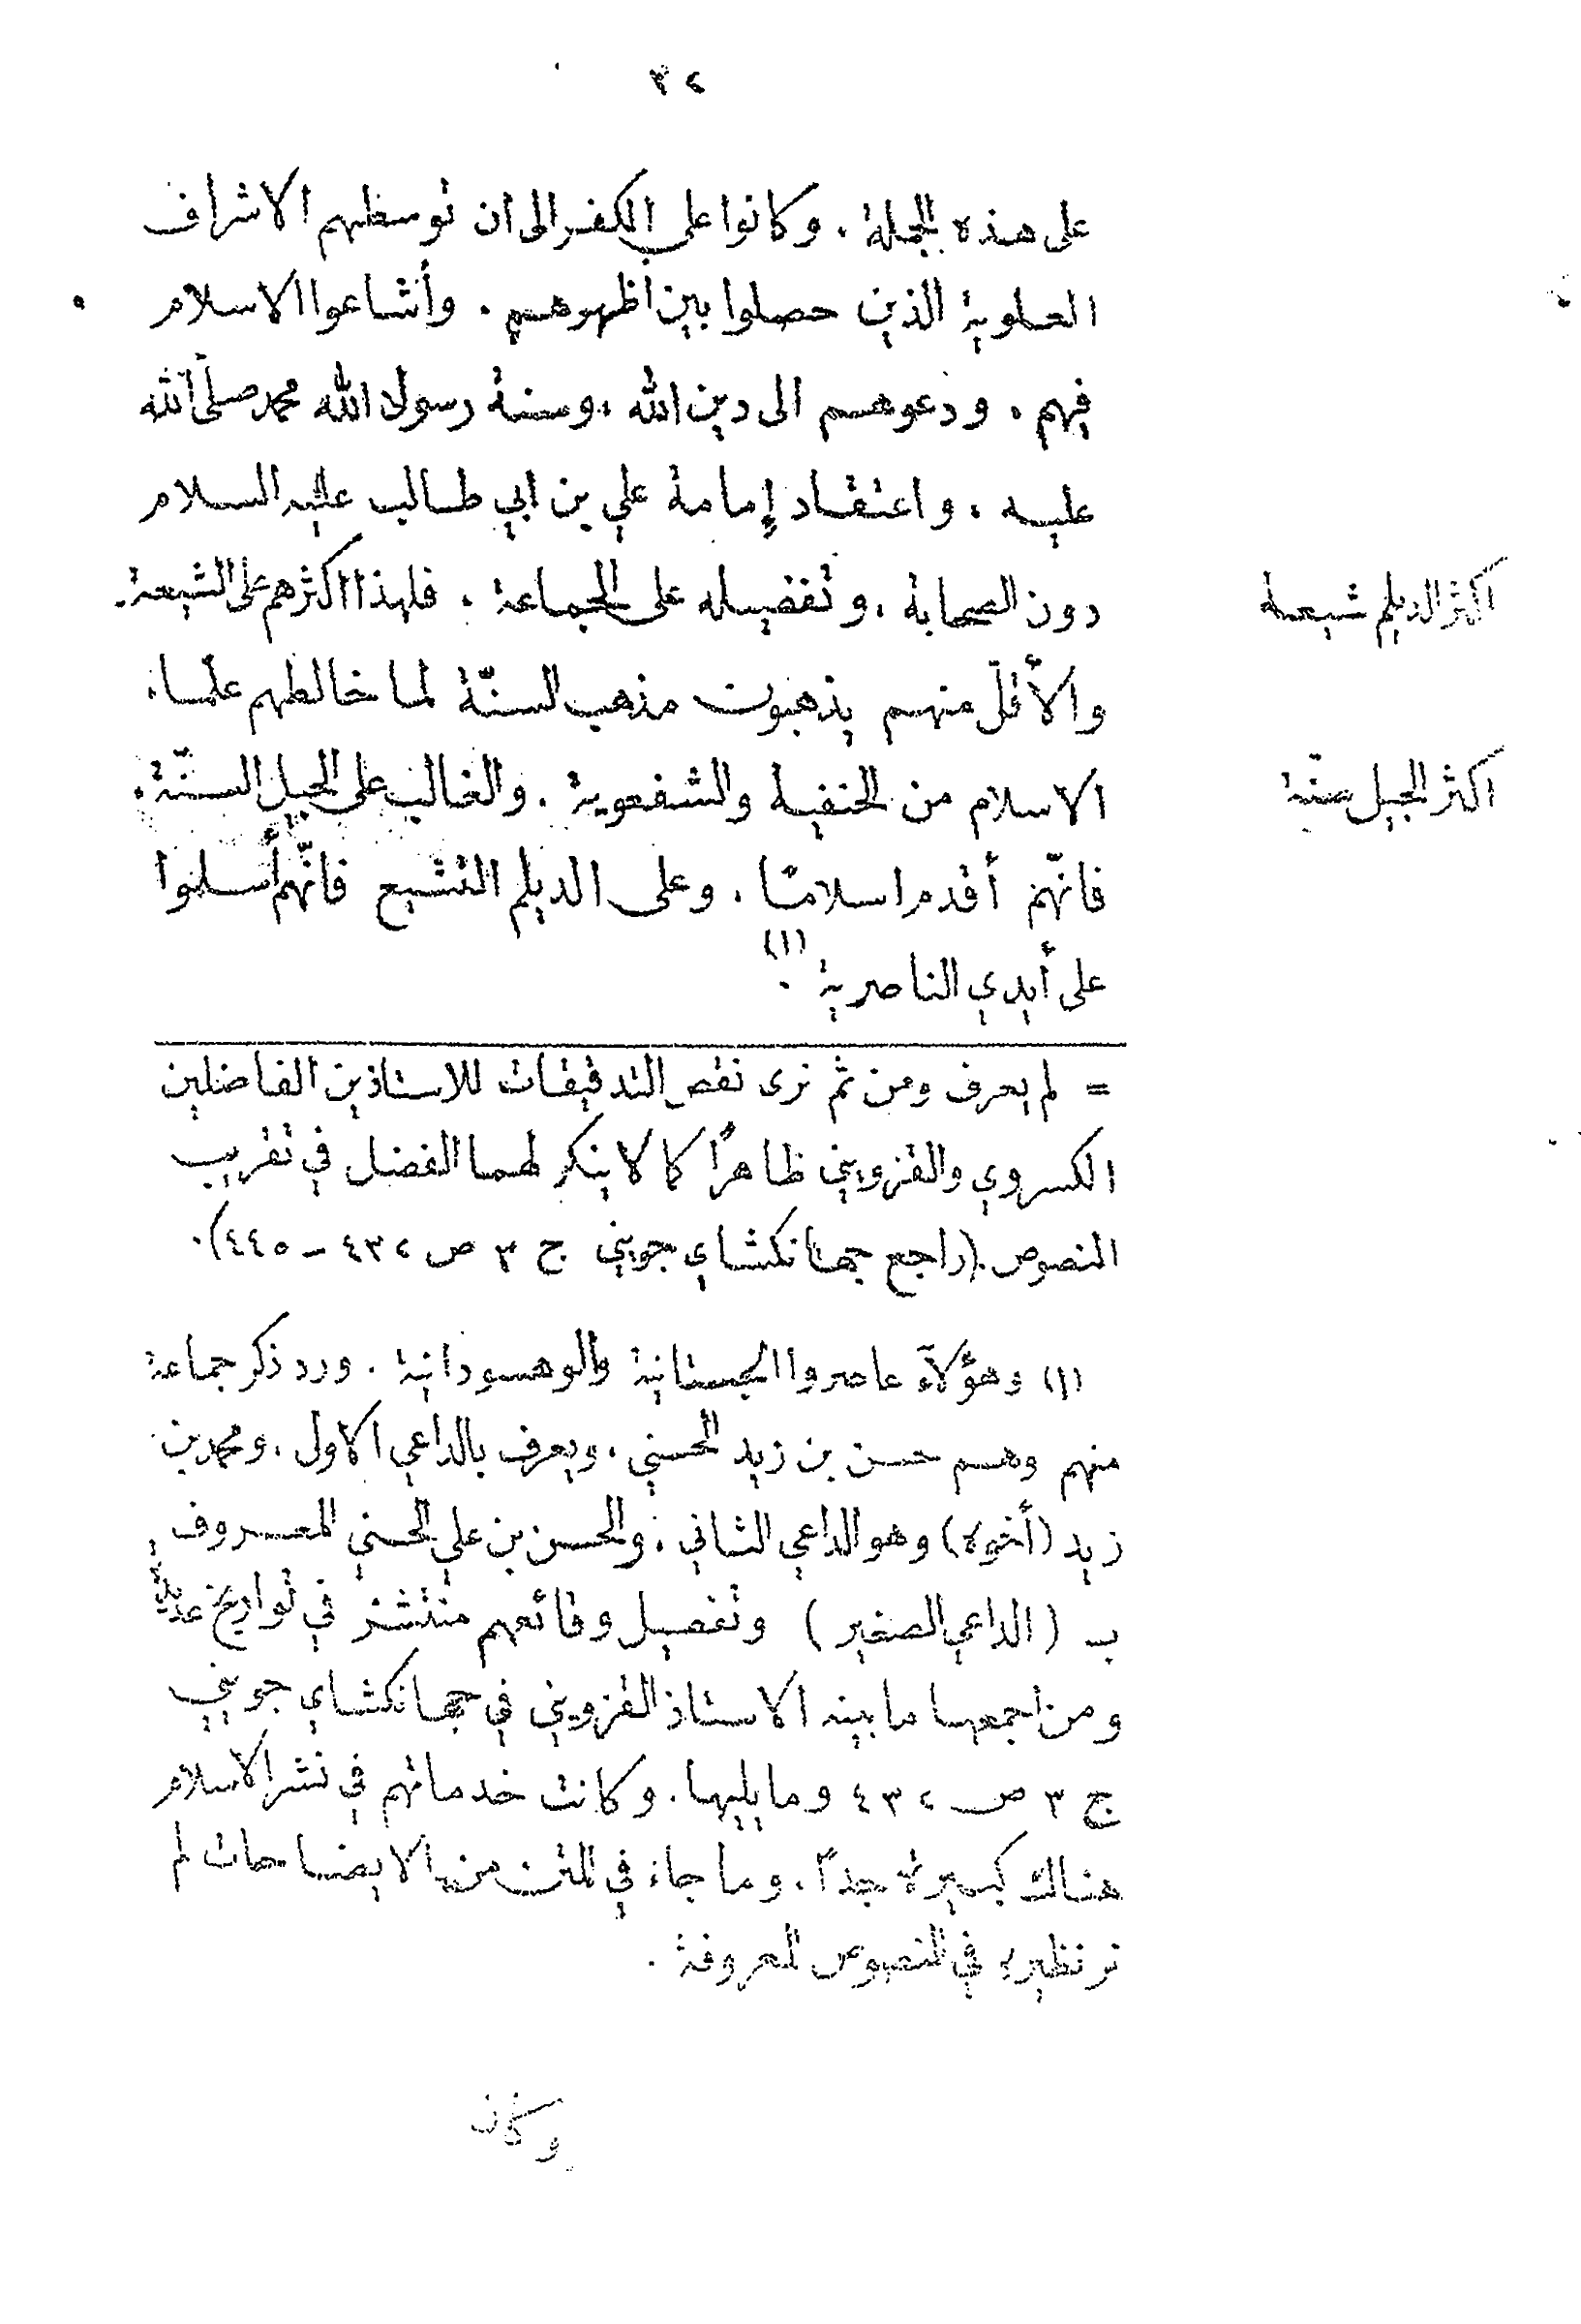 ٢٣
على هذه الجملة . وكانوا على الكفر الى ان توسطهم الاشراف
العلوية الذين حصلوا بين اظهرهم . وأشاعوا الاسلام
فيهم . ودعوهم الى دين الله ، وسنة رسول الله محمد صلّى الله
عليه ، واعتقاد إمامة علي بن ابي طالب عليه السلام
دون الصحابة ، وتفضيله على الجماعة . فلهذا اكثرهم على الشيعة .
اكثر الديلم شيعة
والأقلّ منهم يذهبون مذهب السنّة لما خالطهم علماء
الاسلام من الحنفية والشفعوية . والغالب على الجيل السنّة .
اكثر الجيل سنّة
فانّهم أقدم اسلامًا . وعلى الديلم التشيع فانّهم أسلموا
على أيدي الناصرية (١) .
= لم يعرف ومن ثم نرى نقص التدقيقات للاستاذين الفاضلين
الكسروي والقزويني ظاهرًا كما لا ينكر لهما الفضل في تقريب
النصوص . (راجع جهانكشاي جويني ج ٣ ص ٤٣٢ - ٤٤٥) .
(١) وهؤلآء عاصروا الجستانية والوهسودانية . ورد ذكر جماعة
منهم وهم حسن بن زيد الحسني ، ويعرف بالداعي الاول ، ومحمد بن
زيد (أخوه) وهو الداعي الثاني ، والحسن بن علي الحسني المعروف
ب (الداعي الصغير) وتفصيل وقائعهم منتشر في تواريخ عديدة
ومن اجمعها ما بينه الاستاذ القزويني في جهانكشاي جويني
ج ٣ ص ٤٣٢ وما يليها . وكانت خدماتهم في نشر الاسلام
هناك كبيرة جدًا . وما جاء في المتن من الايضاحات لم
نر نظيره في النصوص المعروفة .
وكان